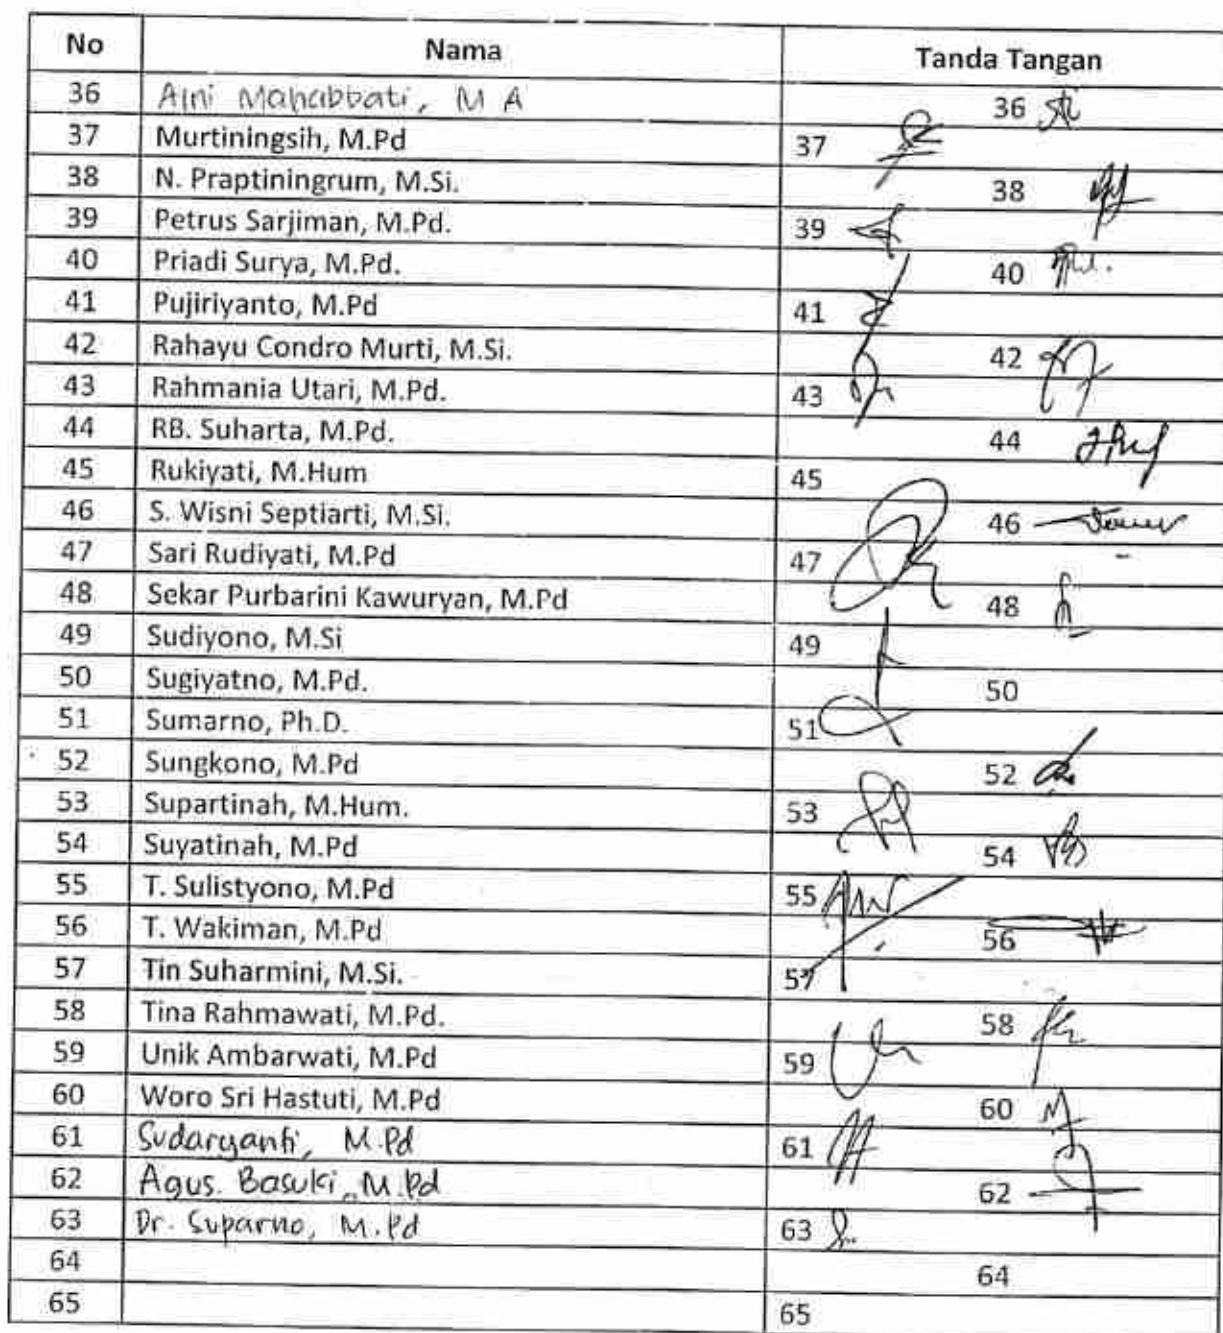 No Nama Tanda Tangan
36 Aini Mahabbati, M A 36
37 Murtiningsih, M.Pd 37
38 N. Praptiningrum, M.Si. 38
39 Petrus Sarjiman, M.Pd. 39
40 Priadi Surya, M.Pd. 40
41 Pujiriyanto, M.Pd 41
42 Rahayu Condro Murti, M.Si. 42
43 Rahmania Utari, M.Pd. 43
44 RB. Suharta, M.Pd. 44
45 Rukiyati, M.Hum 45
46 S. Wisni Septiarti, M.Si. 46
47 Sari Rudiyati, M.Pd 47
48 Sekar Purbarini Kawuryan, M.Pd 48
49 Sudiyono, M.Si 49
50 Sugiyatno, M.Pd. 50
51 Sumarno, Ph.D. 51
52 Sungkono, M.Pd 52
53 Supartinah, M.Hum. 53
54 Suyatinah, M.Pd 54
55 T. Sulistyono, M.Pd 55
56 T. Wakiman, M.Pd 56
57 Tin Suharmini, M.Si. 57
58 Tina Rahmawati, M.Pd. 58
59 Unik Ambarwati, M.Pd 59
60 Woro Sri Hastuti, M.Pd 60
61 Sudaryanti, M.Pd 61
62 Agus. Basuki, M.Pd 62
63 Dr. Suparno, M.Pd 63
64 64
65 65